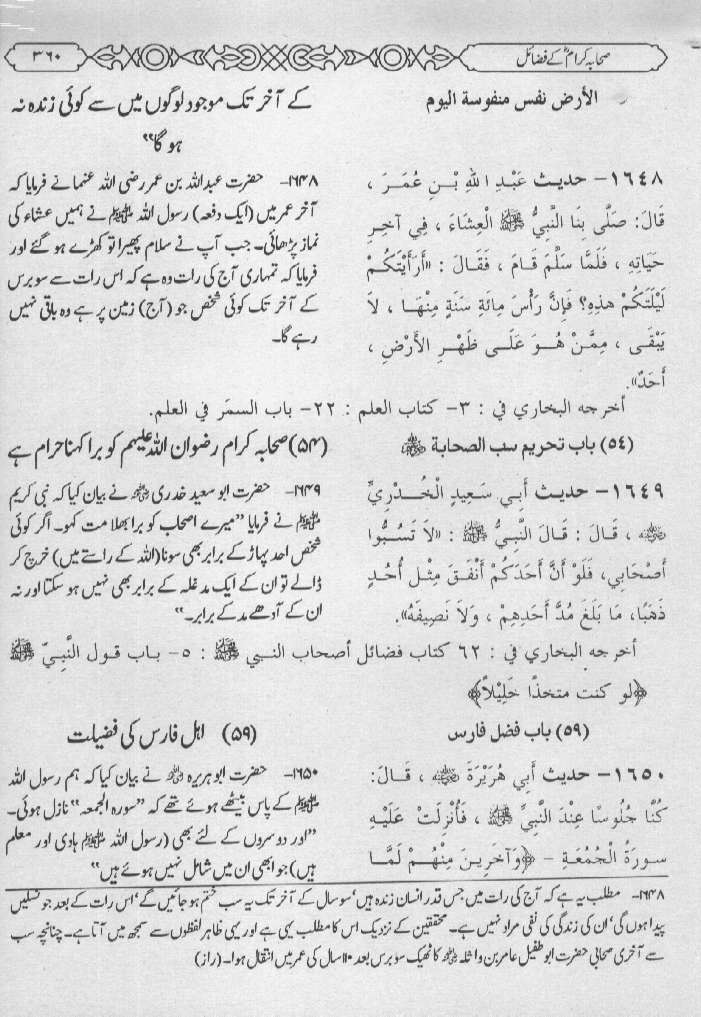 صحابہ کرامؓ کے فضائل
۳۶۰
الأرض نفس منفوسة اليوم
کے آخر تک موجود لوگوں میں سے کوئی زندہ نہ
ہو گا‘‘
١٦٤٨- حديث عَبْدِ اللهِ بْنِ عُمَرَ ،
قَالَ: صَلَّى بِنَا النَّبِيُّ ﷺ الْعِشَاءَ ، فِي آخِرِ
حَيَاتِهِ ، فَلَمَّا سَلَّمَ قَامَ ، فَقَالَ : «أَرَأَيْتَكُمْ
لَيْلَتَكُمْ هذِهِ؟ فَإِنَّ رَأْسَ مِائَةِ سَنَةٍ مِنْهَا ، لاَ
يَبْقَى ، مِمَّنْ هُوَ عَلَى ظَهْرِ الأَرْضِ ،
أَحَدٌ».
۱۶۴۸- حضرت عبداللہ بن عمر رضی اللہ عنہما نے فرمایا کہ
آخر عمر میں (ایک دفعہ) رسول اللہ ﷺ نے ہمیں عشاء کی
نماز پڑھائی۔ جب آپ نے سلام پھیرا تو کھڑے ہو گئے اور
فرمایا کہ تمہاری آج کی رات وہ ہے کہ اس رات سے سو برس
کے آخر تک کوئی شخص جو (آج) زمین پر ہے وہ باقی نہیں
رہے گا۔
أخرجه البخاري في : ٣- كتاب العلم : ٢٢- باب السمَر في العلم.
(٥٤) باب تحريم سب الصحابة ﷺ
(۵۴) صحابہ کرام رضوان اللہ علیہم کو برا کہنا حرام ہے
١٦٤٩- حديث أَبِي سَعِيدٍ الْخُدْرِيِّ
رضي الله عنه ، قَالَ : قَالَ النَّبِيُّ ﷺ : «لاَ تَسُبُّوا
أَصْحَابِي، فَلَوْ أَنَّ أَحَدَكُمْ أَنْفَقَ مِثْلَ أُحُدٍ
ذَهَبًا، مَا بَلَغَ مُدَّ أَحَدِهِمْ ، وَلاَ نَصِيفَهُ».
۱۶۴۹- حضرت ابو سعید خدری رضی اللہ عنہ نے بیان کیا کہ نبی کریم
ﷺ نے فرمایا ’’میرے اصحاب کو برا بھلا مت کہو۔ اگر کوئی
شخص احد پہاڑ کے برابر بھی سونا (اللہ کے راستے میں) خرچ کر
ڈالے تو ان کے ایک مد غلہ کے برابر بھی نہیں ہو سکتا اور نہ
ان کے آدھے مد کے برابر۔‘‘
أخرجه البخاري في : ٦٢ كتاب فضائل أصحاب النبي ﷺ : ٥- باب قول النَّبِيّ ﷺ
﴿لو كنت متخذًا خَلِيْلاً﴾
(٥٩) باب فضل فارس
(۵۹) اہل فارس کی فضیلت
١٦٥٠- حديث أَبِي هُرَيْرَةَ رضي الله عنه ، قَالَ:
كُنَّا جُلُوسًا عِنْدَ النَّبِيِّ ﷺ ، فَأُنْزِلَتْ عَلَيْهِ
سورَةُ الْجُمُعَةِ - ﴿وَآخَرِينَ مِنْهُمْ لَمَّا
۱۶۵۰- حضرت ابو ہریرہ رضی اللہ عنہ نے بیان کیا کہ ہم رسول اللہ
ﷺ کے پاس بیٹھے ہوئے تھے کہ ’’سورہ الجمعہ‘‘ نازل ہوئی۔
’’اور دوسروں کے لئے بھی (رسول اللہ ﷺ ہادی اور معلم
ہیں) جو ابھی ان میں شامل نہیں ہوئے ہیں‘‘
۱۶۴۸- مطلب یہ ہے کہ آج کی رات میں جس قدر انسان زندہ ہیں‘ سو سال کے آخر تک یہ سب ختم ہو جائیں گے‘ اس رات کے بعد جو نسلیں
پیدا ہوں گی‘ ان کی زندگی کی نفی مراد نہیں ہے۔ محققین کے نزدیک اس کا مطلب یہی ہے اور یہی ظاہر لفظوں سے سمجھ میں آتا ہے۔ چنانچہ سب
سے آخری صحابی حضرت ابو طفیل عامر بن واثلہ رضی اللہ عنہ کا ٹھیک سو برس بعد ۱۱۰ سال کی عمر میں انتقال ہوا۔ (راز)